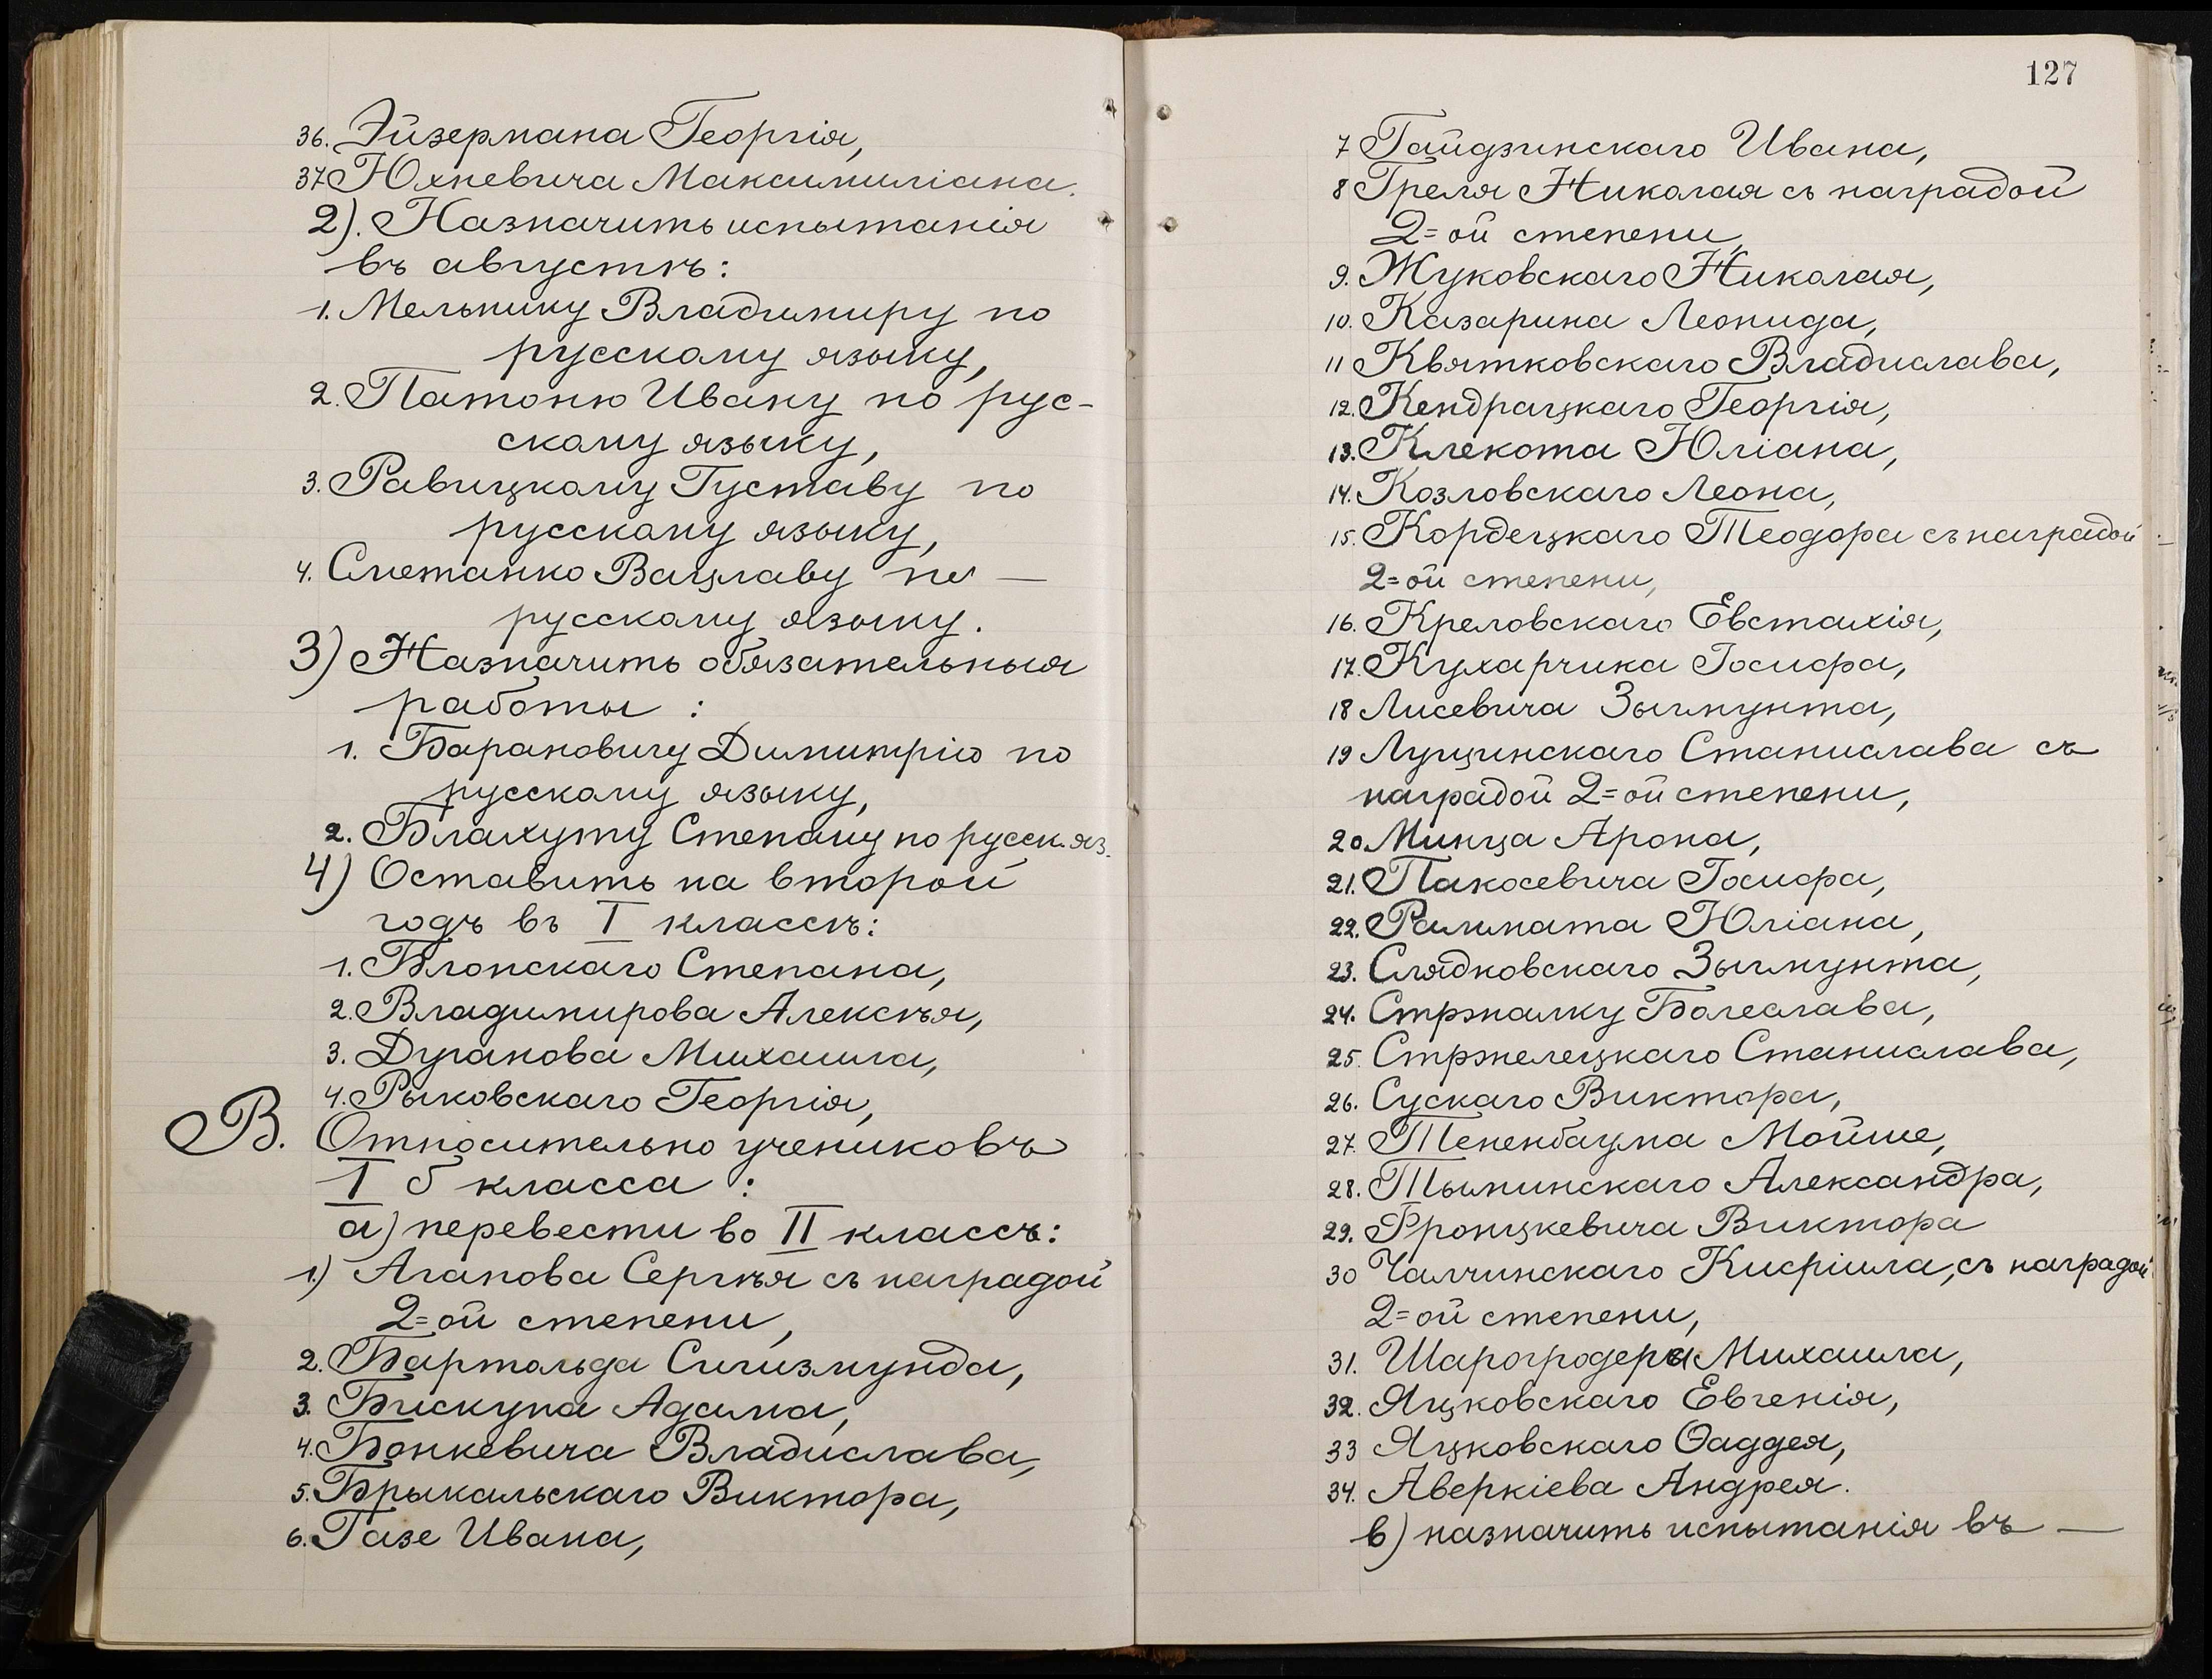 36. Эйзермана Георгія,
37 Юхневича Максимиліана.
2). Назначить испытанія
въ августѣ:
1. Мельнику Владимиру по
русскому языку,
2. Патоню Ивану по рус-
скому языку,
3. Равицкому Густаву по
русскому языку,
4. Сметанко Вацлаву по —
русскому языку.
3) Назначить обязательныя
работы :
1. Барановичу Димитрію по
русскому языку,
2. Блахуту Степану по русск. яз.
4) Оставить на второй
годъ въ I классѣ:
1. Блонскаго Степана,
2. Владимирова Алексѣя,
3. Дуганова Михаила,
4. Рыковскаго Георгія,
В. Относительно учениковъ
I б класса :
а) перевести во II классъ:
1.) Агапова Сергѣя съ наградой
2=ой степени,
2. Бартольда Сигизмунда,
3. Бискупа Адама,
4. Бонкевича Владислава,
5. Брыкальскаго Виктора,
6. Газе Ивана,
127
7 Гайдзинскаго Ивана,
8 Греля Николая съ наградой
2=ой степени,
9. Жуковскаго Николая,
10. Казарина Леонида,
11 Квятковскаго Владислава,
12. Кендрацкаго Георгія,
13. Клекота Юліана,
14. Козловскаго Леона,
15. Кордецкаго Теодора съ наградой
2=ой степени,
16. Креловскаго Евстахія,
17. Кухарчика Іосифа,
18 Лисевича Зыгмунта,
19 Лущинскаго Станислава съ
наградой 2=ой степени,
20 Минца Арона,
21. Пакосевича Іосифа,
22. Раммата Юліана,
23. Слядковскаго Зыгмунта,
24. Стржалку Болеслава,
25. Стржелецкаго Станислава,
26. Сускаго Виктора,
27. Тененбаума Мойше,
28. Тыминскаго Александра,
29. Фронцкевича Виктора
30 Чалчинскаго Кифріила, съ наградой
2=ой степени,
31. Шарогродера Михаила,
32. Яцковскаго Евгенія,
33 Яцковскаго Ѳаддея,
34. Аверкіева Андрея.
в) назначить испытанія въ —